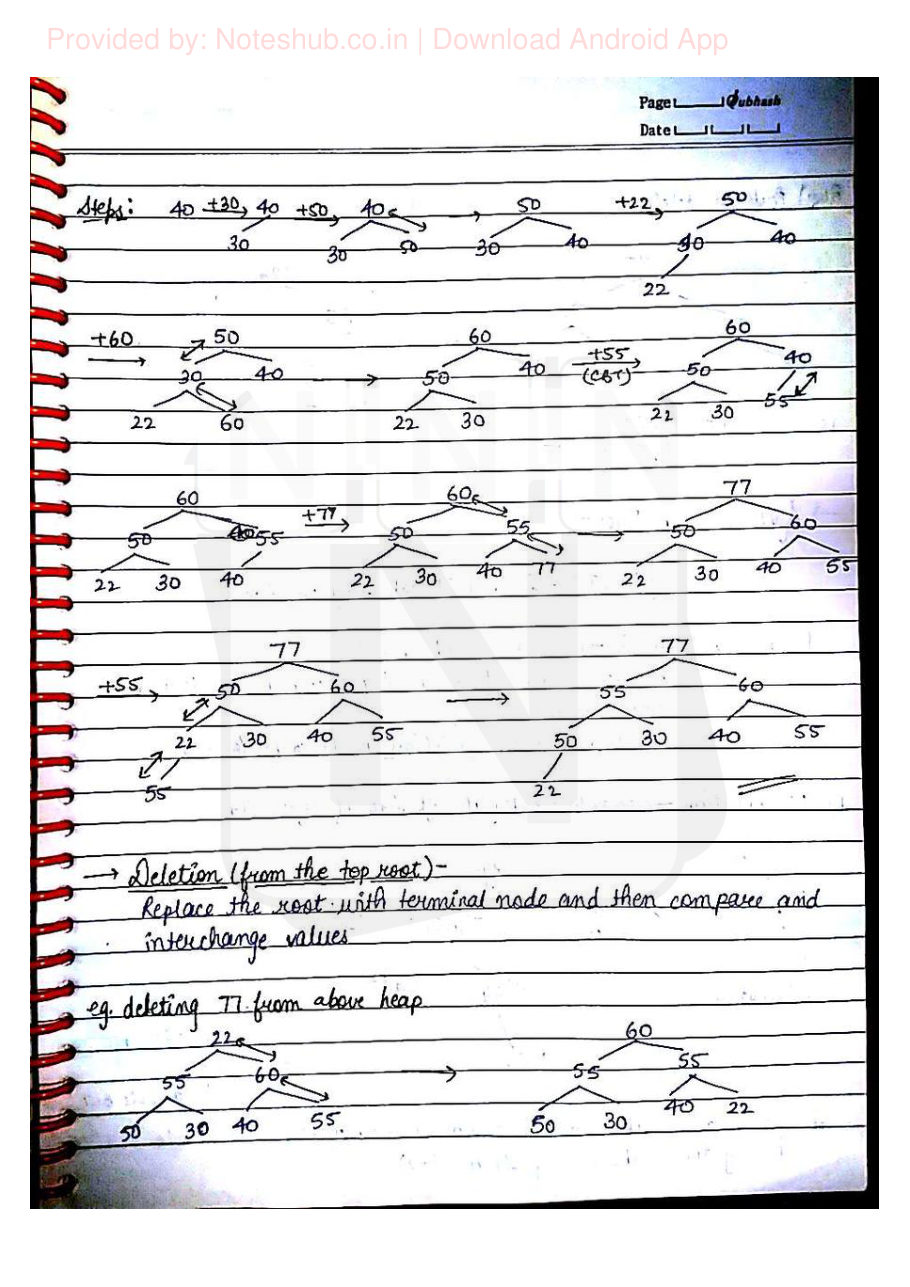 Provided by: Noteshub.co.in | Download Android App
Page Subhash
Date
Steps: 40 +30 40 +50 40 50 +22 50
30 30 50 30 40 30 40
22
+60 50 60 +55 60
30 40 50 40 (CBT) 50 40
22 60 22 30 22 30 55
60 +77 60 77
50 55 50 55 50 60
22 30 40 22 30 40 77 22 30 40 55
77 77
+55 50 60 55 60
22 30 40 55 50 30 40 55
55 22
→ Deletion (from the top root) -
Replace the root with terminal node and then compare and
interchange values
eg. deleting 77 from above heap
22 60
55 60 55 55
50 30 40 55 50 30 40 22